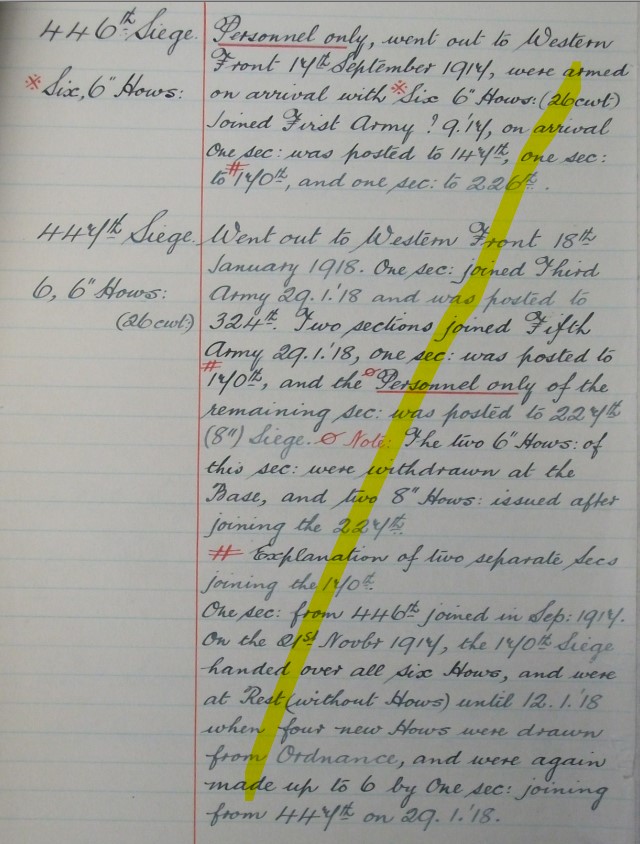 446th Siege.
※ Six, 6" Hows:
Personnel only, went out to Western
Front 17th September 1917, were armed
on arrival with ※Six 6" Hows: (26cwt)
Joined First Army ? 9.'17, on arrival
One sec: was posted to 147th, one sec:
to #170th, and one sec: to 226th.
447th Siege.
6, 6" Hows:
(26cwt:)
Went out to Western Front 18th
January 1918. One sec: joined Third
Army 29.1.'18 and was posted to
324th. Two sections joined Fifth
Army 29.1.'18, one sec: was posted to
#170th, and the ø Personnel only of the
remaining sec: was posted to 227th
(8") Siege. ø Note: The two 6" Hows: of
this sec: were withdrawn at the
Base, and two 8" Hows: issued after
joining the 227th
# Explanation of two separate Secs
joining the 170th.
One sec: from 446th joined in Sep: 1917.
On the 21st Novbr 1917, the 170th Siege
handed over all six Hows, and were
at Rest (without Hows) until 12.1.'18
when four new Hows were drawn
from Ordnance, and were again
made up to 6 by One sec: joining
from 447th on 29.1.'18.